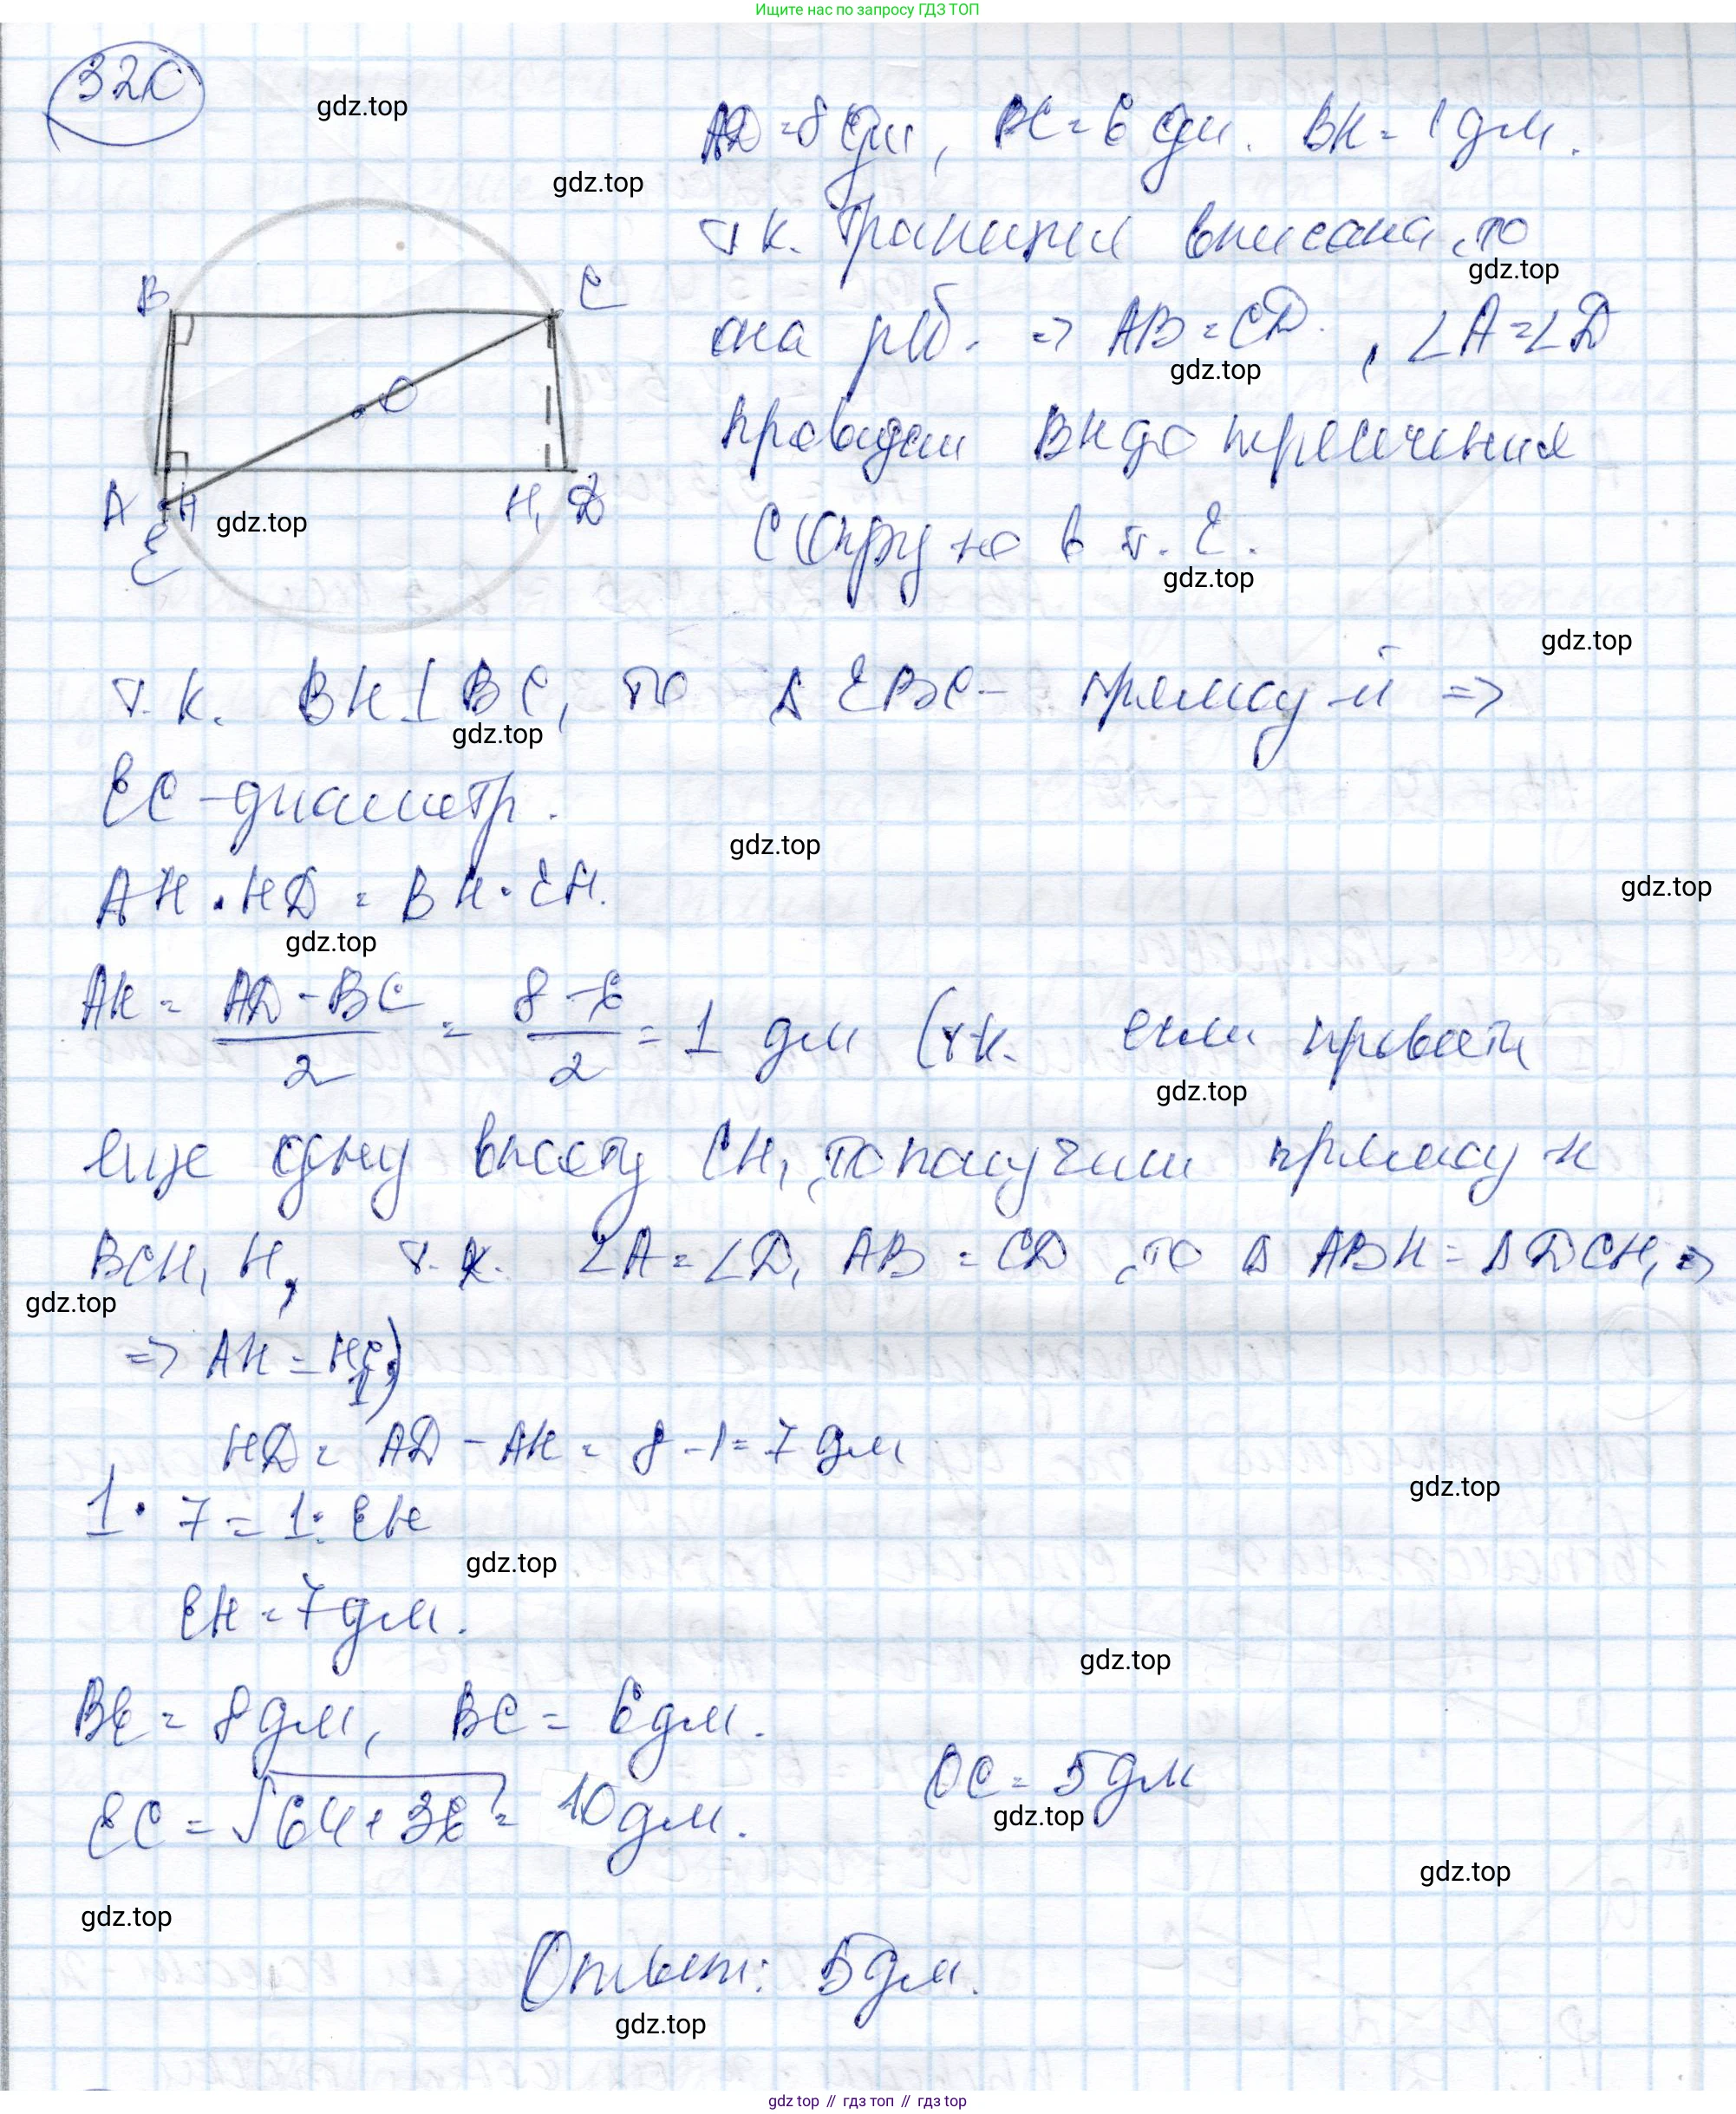 Ищите нас по запросу ГДЗ ТОП
320
gdz.top
AD = 8 дм, BC = 6 дм. BH = 1 дм.
gdz.top
т.к. трапеция вписана, то
gdz.top
она р/б. => AB = CD, ∠A = ∠D
gdz.top
B C
O
проведем BH до пересечения
A H H₁ D
E
gdz.top
с окружно в т. E.
gdz.top
gdz.top
т.к. BH ⊥ BC, то Δ EBC - прямоу-й =>
gdz.top
EC - диаметр.
gdz.top
AH · HD = BH · EH.
gdz.top
gdz.top
AH = (AD - BC)/2 = (8 - 6)/2 = 1 дм (т.к. если провести
gdz.top
еще одну высоту CH₁, то получим прямоу-к
BCH₁H, т.к. ∠A = ∠D, AB = CD, то Δ ABH = Δ DCH₁ =>
gdz.top
=> AH = H₁D)
HD = AD - AH = 8 - 1 = 7 дм
gdz.top
1 · 7 = 1 · EH
gdz.top
EH = 7 дм.
gdz.top
BE = 8 дм, BC = 6 дм.
OC = 5 дм
gdz.top
EC = √64 + 36 = 10 дм.
gdz.top
gdz.top
Ответ: 5 дм.
gdz.top
gdz.top // гдз топ // гдз top